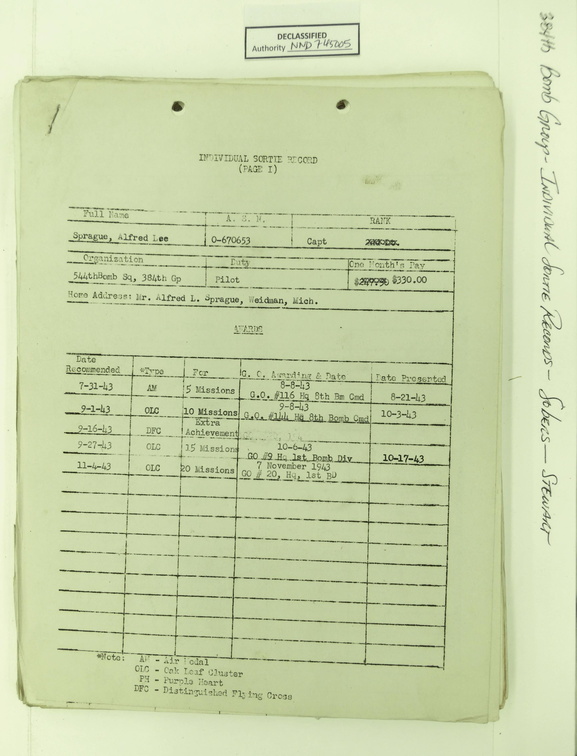 DECLASSIFIED
Authority NND 745005
384th Bomb Group - Individual Sortie Records - Sobers - Stewart
INDIVIDUAL SORTIE RECORD
(PAGE I)
Full Name A. S. N. RANK
Sprague, Alfred Lee O-670653 Capt
Organization Duty One Month's Pay
544thBomb Sq, 384th Gp Pilot $247.50 $330.00
Home Address: Mr. Alfred L. Sprague, Weidman, Mich.
AWARDS
Date
Recommended *Type For G. O. Awarding & Date Date Presented
7-31-43 AM 5 Missions 8-8-43
G.O. #116 Hq 8th Bm Cmd 8-21-43
9-1-43 OLC 10 Missions 9-8-43
G.O. #144 Hq 8th Bomb Cmd 10-3-43
9-16-43 DFC Extra
Achievement
9-27-43 OLC 15 Missions 10-6-43
GO #9 Hq 1st Bomb Div 10-17-43
11-4-43 OLC 20 Missions 7 November 1943
GO # 20, Hq, 1st BD
*Note: AM - Air Medal
OLC - Oak Leaf Cluster
PH - Purple Heart
DFC - Distinguished Flying Cross